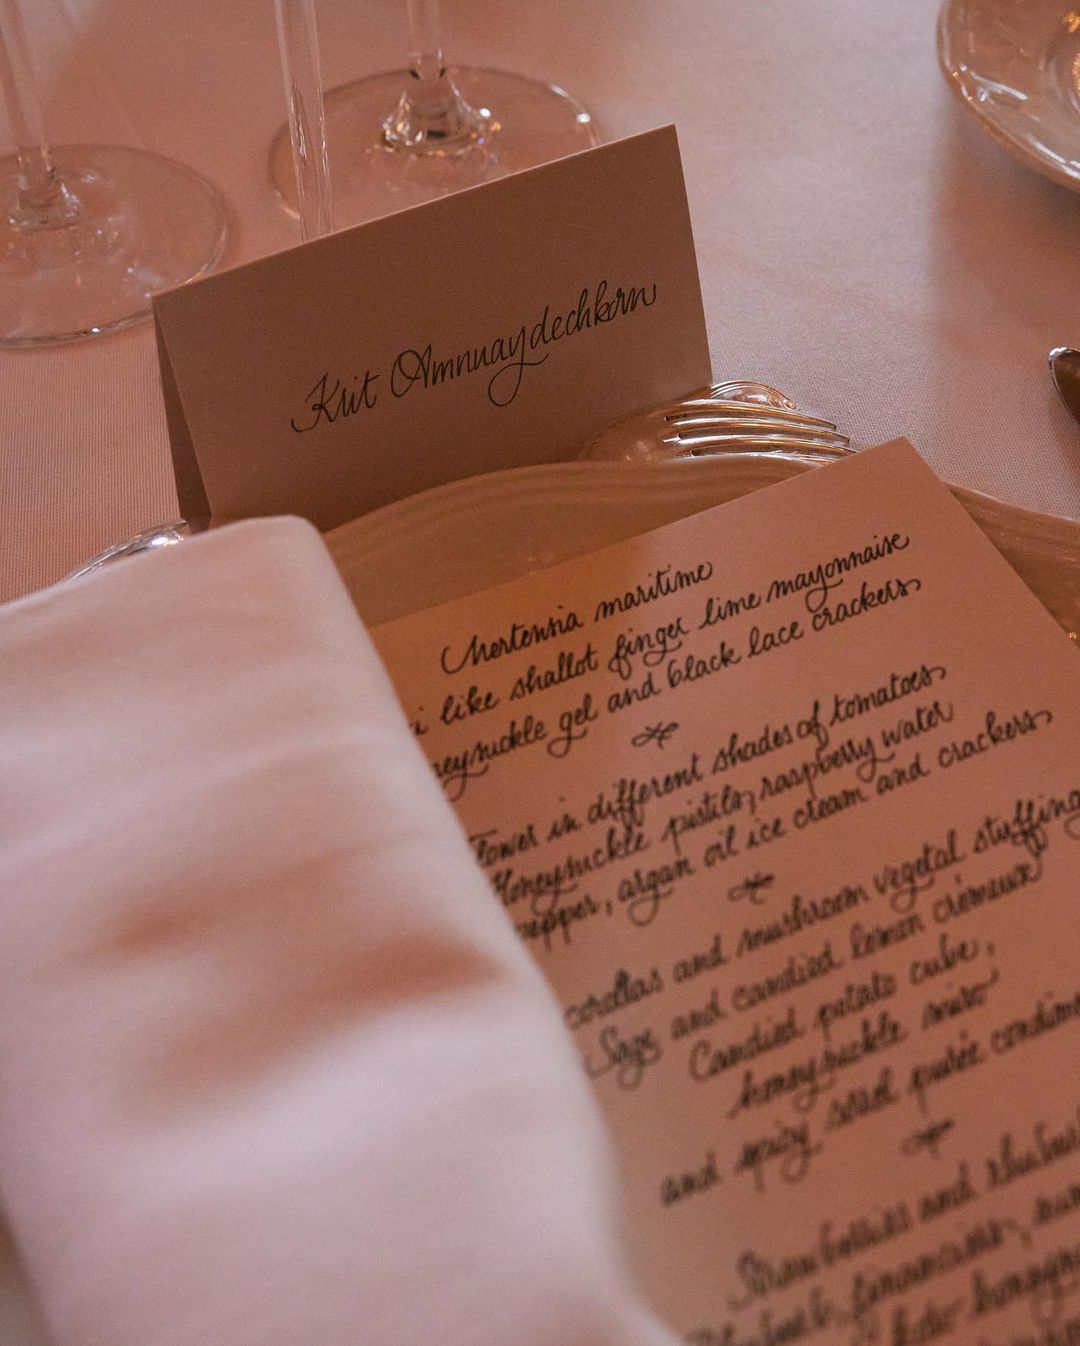 Krit Amnuaydechkorn
Mertensia maritime
i like shallot finger lime mayonnaise
neysuckle gel and black lace crackers
Flower in different shades of tomatoes,
Honeysuckle pistils, raspberry water
pepper, argan oil ice cream and crackers
corollas and mushroom vegetal stuffing
Sage and candied lemon crémeux
Candied potato cube,
honeysuckle miso
and spicy purée
Strawberries and
financiers,